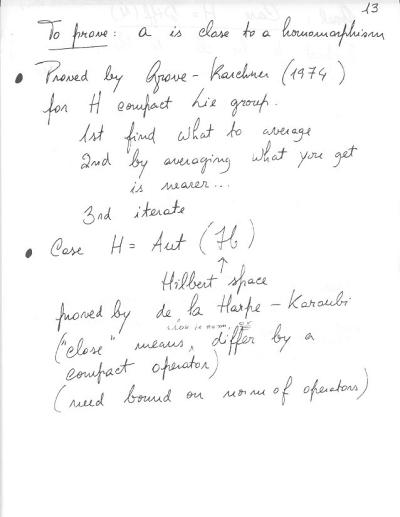 13
To prove: a is close to a homomorphism
• Proved by Grove-Karcher (1974)
for H compact Lie group.
1st find what to average
2nd by averaging what you get
is nearer...
3rd iterate
• Case H = Aut (H)
↑
Hilbert space
proved by de la Harpe - Karoubi
close in norm, or
("close" means, differ by a
compact operator)
(need bound on norm of operators)